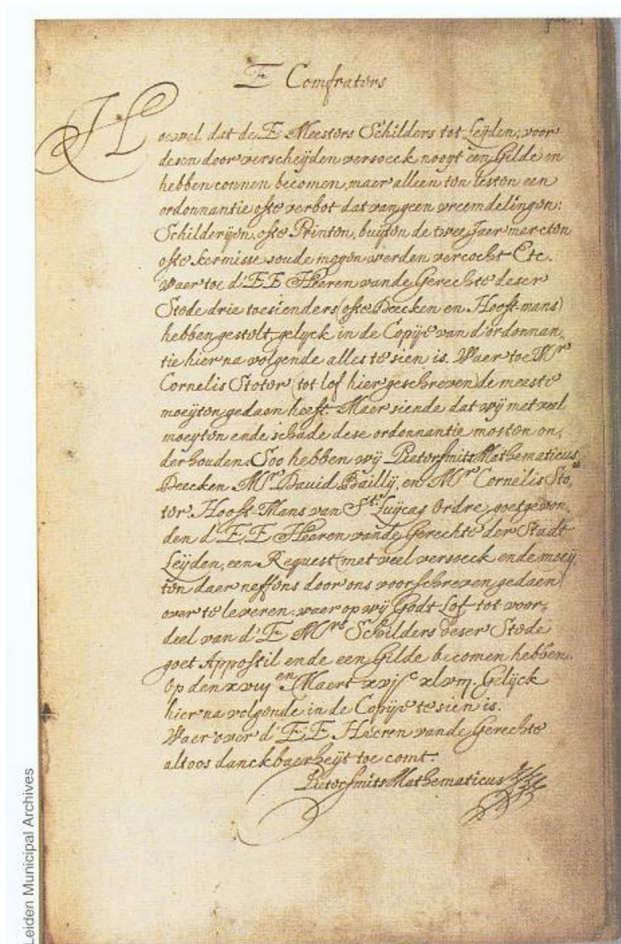 E Comfraters
Hoewel dat de E Meesters Schilders tot Leÿden, voor
desen door verscheijden versoeck nooyt een Gilde en
hebben connen becomen, maer alleen ten lesten een
ordonnantie ofte verbot dat van geen vreemdelingen:
Schilderijen, ofte Printen, buijten de twee Jaer marcten
ofte kermisse soude mogen werden vercocht Etc.
Waer toe d'E E Heeren vande Gerechte deser
Stede drie toesienders (ofte Deecken en Hooft-mans)
hebben gestelt, gelijck in de Copije van d'ordonnan,
tie hier na volgende alles te sien is. Waer toe Mr
Cornelis Stoter (tot lof hier geschreven) de meeste
moeÿten gedaen heeft. Maer siende dat wij met veel
moeyten ende schade dese ordonnantie mosten on,
derhouden. Soo hebben wij Pieter smits Mathematicus
Deecken Mr David Baillÿ, en Mr Cornelis Sto,
ter Hooft-Mans van St Luÿcas Ordre, goetgevon,
den d'E E Heeren vande Gerechte der Stadt
Leÿden, een Request (met veel versoeck ende moeÿ,
ten daer neffens door ons voorschreven gedaen)
over te leveren, waer op wij Godt Lof, tot voor,
deel van d'E Mrs Schilders deser Stede
goet Appostil ende een Gilde becomen hebben.
Op den xviij en Maert xvjc xlviij. Gelijck
hier na volgende in de Copije te sien is.
Waer over d'E E Heeren vande Gerechte
altoos danckbaerheijt toe comt.
Pieter smits Mathematicus
Leiden Municipal Archives